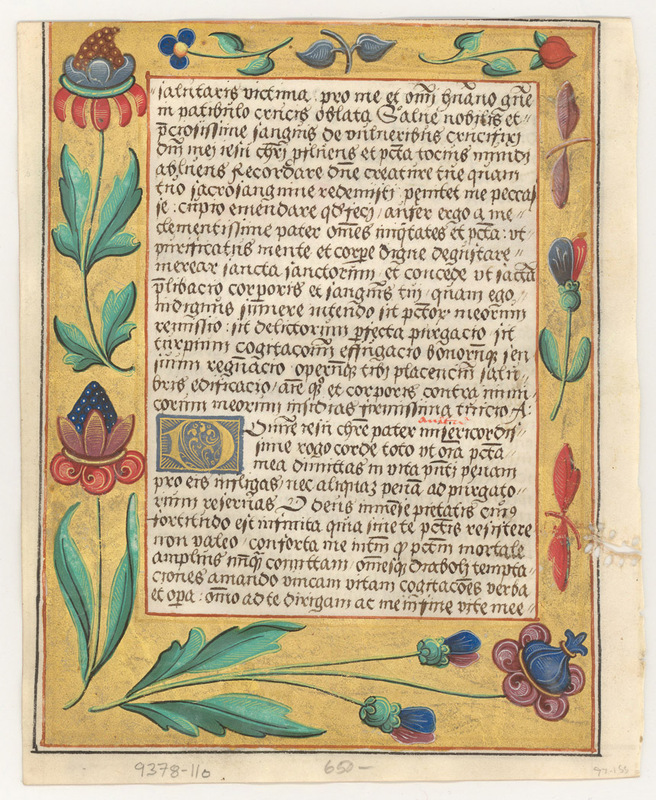 salutaris victima : pro me et om̄j hūano gn̄e
in patibulo crucis oblata Salue nobilis et
p̄ciosissime sanguis de vulneribus crucifixi
dn̄j mei iesu chr̄j pfluens et pctā tocius mundi
abluens Recordare dn̄e creature tue quam
tuo sacrosanguine redemisti penitet me peccas
se : cupio emendare qd̄ feci : aufer ergo a me
clementissime pater om̄es iniqtates et pctā : vt
purificatus mente et corpe digne degustare
merear sancta sanctorum et concede vt sācta
p̄libacio corporis et sanguis tui quam ego
indignus sumere intendo sit pctōr meorum
remissio : sit delictorum pfecta purgacio sit
turpium cogitacoīm effugacio bonorumq sen
suum regn̄acio operumq tibj placencium salu
bris edificacio aīe q et corporis contra inimi
corum meorum insidias firmissima tuicio A
Domine iesu chr̄e pater misericordis
sime rogo corde toto vt om̄ia pctā
mea dimittas in vita pn̄ti penam
pro eis infligas nec aliquaz penā ad purgato
rium reserues O deus immēse pietatis cui9
fortitudo est infinita quia sine te pctīs resistere
non valeo conforta me intm̄ q pctm̄ mortale
amplius nunq comittam om̄esq diaboli tempta
ciones amando vincam vitam cogitacōes verba
et opa : om̄io ad te dirigam ac me in fine vite mee
9378-110.
650-